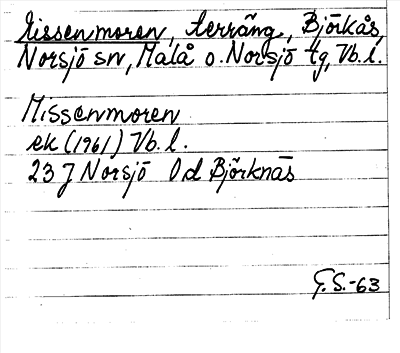 Missenmoren, terräng, Björkås,
Norsjö sn, Malå o. Norsjö tg, Vb. l.
Missenmoren
ek (1961) Vb. l.
23 J Norsjö 0d Björknäs
G.S.-63